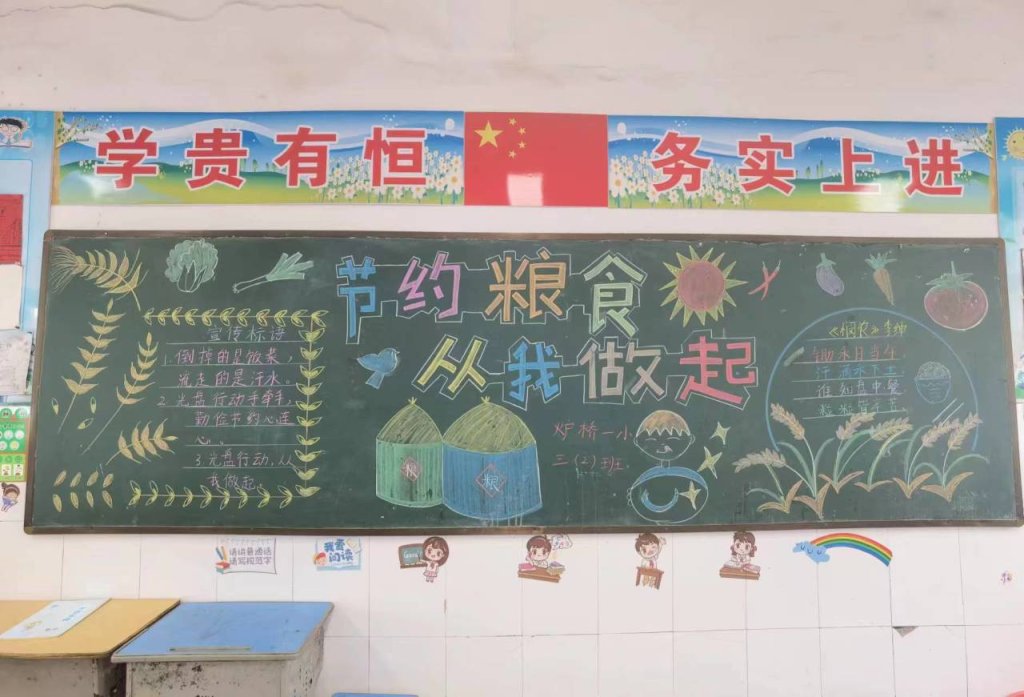 学贵有恒
务实上进
节约粮食
从我做起
宣传标语
1.倒掉的是饭菜，
流走的是汗水。
2.光盘行动手牵手，
勤俭节约心连
心。
3.光盘行动,从
我做起。
粮
粮
炉桥一小
三(2)班
《悯农》李绅
锄禾日当午,
汗滴禾下土
谁知盘中餐
粒粒皆辛苦。
请讲普通话
请写规范字
我爱
阅读